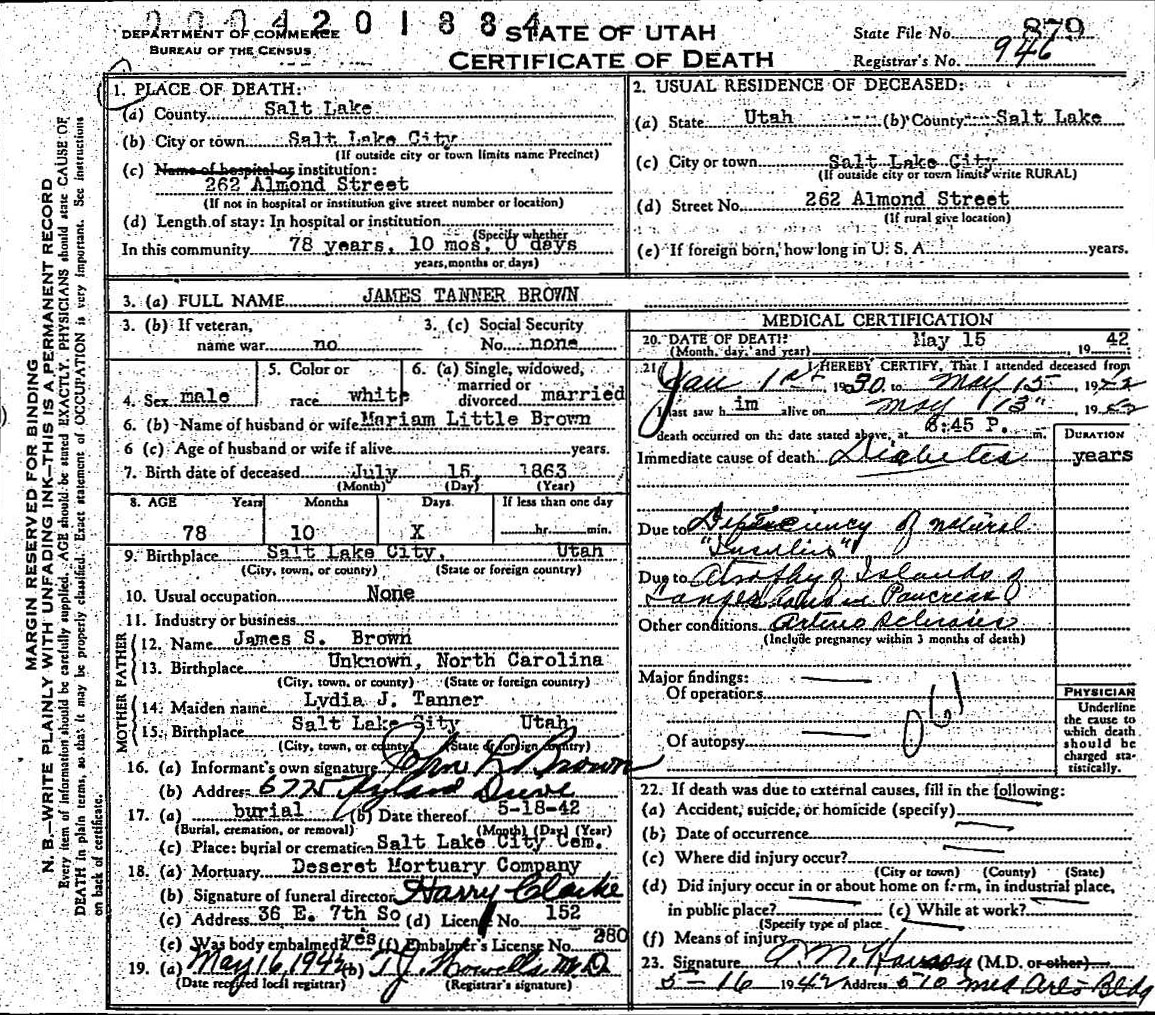 0004201884
DEPARTMENT OF COMMERCE
BUREAU OF THE CENSUS
STATE OF UTAH
CERTIFICATE OF DEATH
State File No. 879
Registrar's No. 946
MARGIN RESERVED FOR BINDING
N. B.—WRITE PLAINLY WITH UNFADING INK—THIS IS A PERMANENT RECORD
Every item of information should be carefully supplied. AGE should be stated EXACTLY. PHYSICIANS should state CAUSE OF
DEATH in plain terms, so that it may be properly classified. Exact statement of OCCUPATION is very important. See instructions
on back of certificate.
1. PLACE OF DEATH:
(a) County Salt Lake
(b) City or town Salt Lake City
(If outside city or town limits name Precinct)
(c) Name of hospital or institution:
262 Almond Street
(If not in hospital or institution give street number or location)
(d) Length of stay: In hospital or institution
(Specify whether
In this community 78 years, 10 mos, 0 days
years, months or days)
2. USUAL RESIDENCE OF DECEASED:
(a) State Utah (b) County Salt Lake
(c) City or town Salt Lake City
(If outside city or town limits write RURAL)
(d) Street No. 262 Almond Street
(If rural give location)
(e) If foreign born, how long in U. S. A. years.
3. (a) FULL NAME JAMES TANNER BROWN
3. (b) If veteran, name war no
3. (c) Social Security No. none
4. Sex male
5. Color or race white
6. (a) Single, widowed, married or divorced married
6. (b) Name of husband or wife Mariam Little Brown
6 (c) Age of husband or wife if alive years.
7. Birth date of deceased July 15, 1863
(Month) (Day) (Year)
8. AGE Years Months Days If less than one day
78 10 X hr. min.
9. Birthplace Salt Lake City, Utah
(City, town, or county) (State or foreign country)
10. Usual occupation None
11. Industry or business
FATHER
12. Name James S. Brown
13. Birthplace Unknown, North Carolina
(City, town, or county) (State or foreign country)
MOTHER
14. Maiden name Lydia J. Tanner
15. Birthplace Salt Lake City Utah
(City, town, or county) (State or foreign country)
16. (a) Informant's own signature John Brown
(b) Address Drive
17. (a) burial (b) Date thereof 5-18-42
(Burial, cremation, or removal) (Month) (Day) (Year)
(c) Place: burial or cremation Salt Lake City Cem.
18. (a) Mortuary Deseret Mortuary Company
(b) Signature of funeral director Harry Clarke
(c) Address 36 E. 7th So (d) License No. 152
(e) Was body embalmed? yes (f) Embalmer's License No. 280
19. (a) May 16, 1942 (b) T.J. Howells M.D.
(Date received local registrar) (Registrar's signature)
MEDICAL CERTIFICATION
20. DATE OF DEATH: May 15, 1942
(Month, day, and year)
21. I HEREBY CERTIFY, That I attended deceased from
Jan 1st 1930 to May 15 1942
I last saw him alive on May 13" 1942
death occurred on the date stated above, at 8:45 P. m.
DURATION
Immediate cause of death Diabetes years
Due to Deficiency of natural
"Insulin"
Due to Atrophy of Islands of
Langerhans in Pancreas
Other conditions Arterio Sclerosis
(Include pregnancy within 3 months of death)
Major findings:
Of operations
061
Of autopsy
PHYSICIAN
Underline
the cause to
which death
should be
charged sta-
tistically.
22. If death was due to external causes, fill in the following:
(a) Accident, suicide, or homicide (specify)
(b) Date of occurrence
(c) Where did injury occur?
(City or town) (County) (State)
(d) Did injury occur in or about home on farm, in industrial place,
in public place? (e) While at work?
(Specify type of place
(f) Means of injury
23. Signature (M.D. or other)
5-16 1942 Address 570 Med Arts Bldg